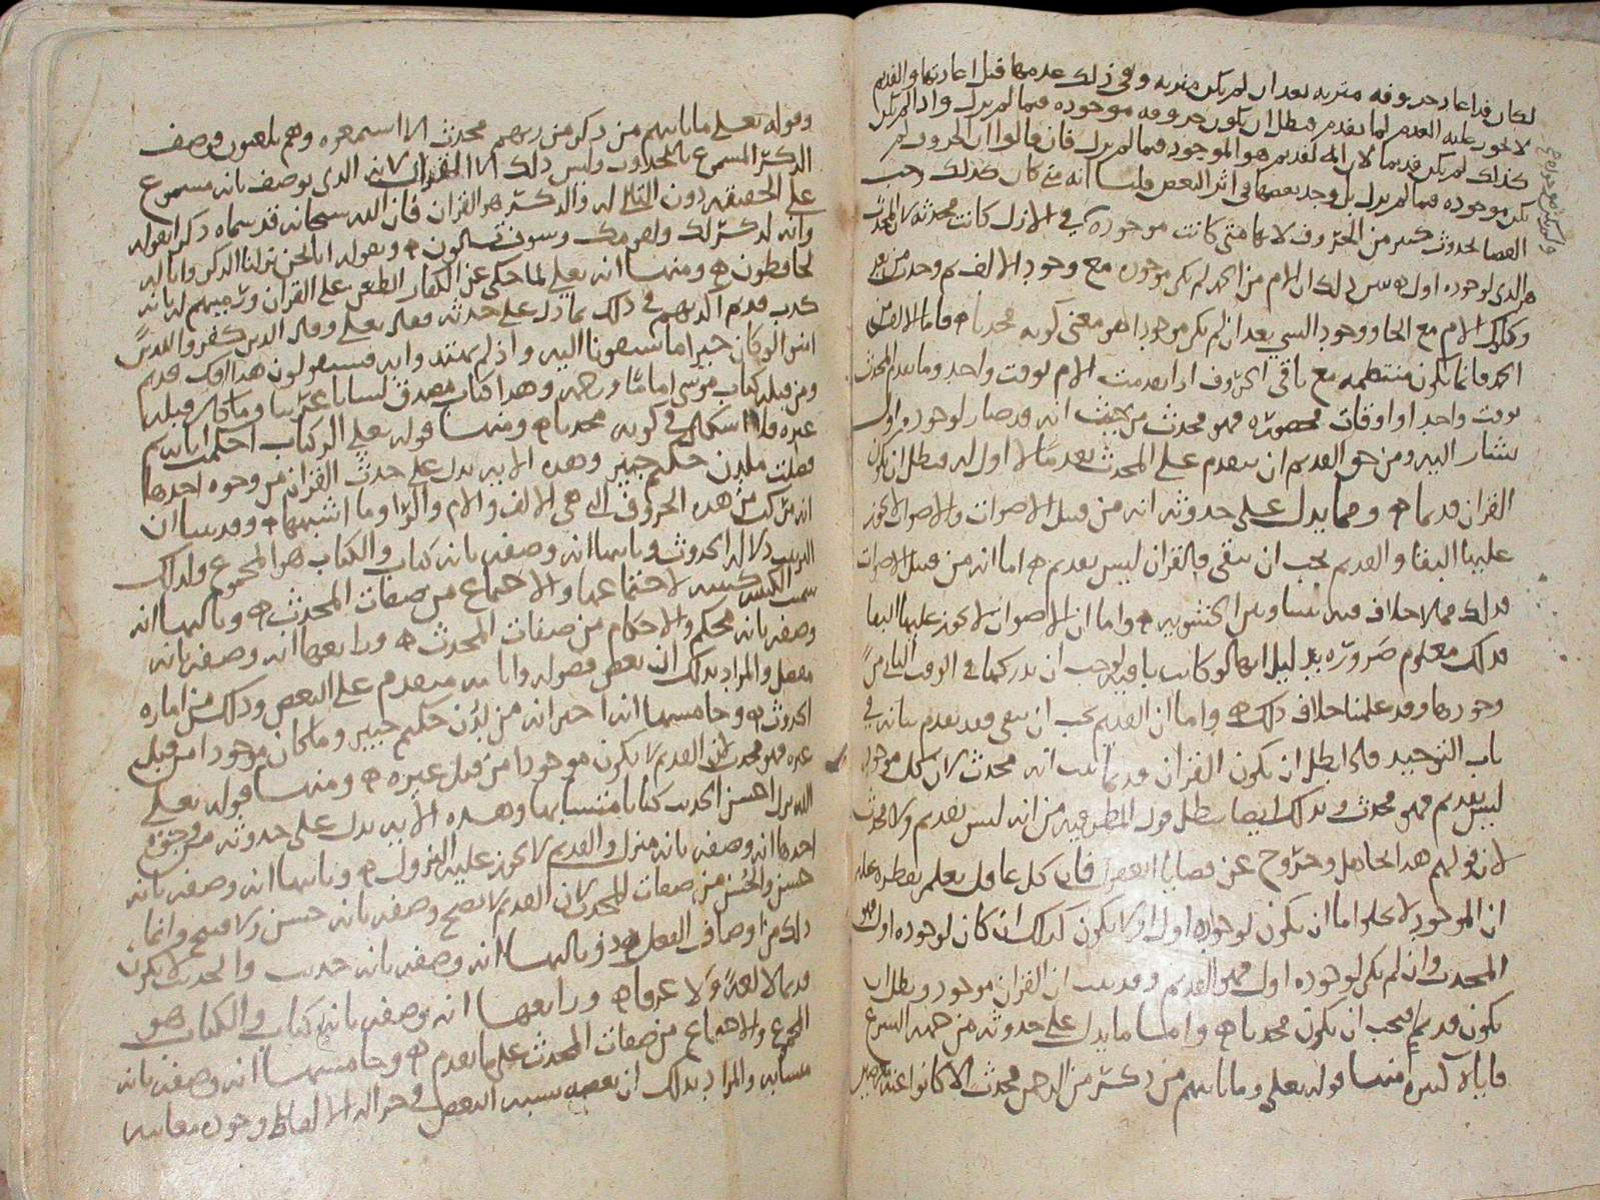 لكان قد اعاد حروفه مترتبه بعد ان لم تكن مترتبه وفي ذلك عدمها قبل اعادتها والقديم
لا يجوز عليه العدم لما تقدم فبطل ان تكون حروفه موجوده فيما لم يزل واذا لم تكن
كذلك لم يكن قديما لان القديم هو الموجود فيما لم يزل فان قالوا ان الحروف لم
تكن موجوده فيما لم يزل بل وجد بعضها في اثر البعض قلنا انه متى كان كذلك وجب
القضا بحدوث كثير من الحروف لانها متى كانت موجوده في الازل كانت محدثه لان المحدث
هو الذي لوجوده اول يبين ذلك ان اللام من الحمد لم تكن موجوده مع وجود الالف ثم وحدت من بعد
وكذلك اللام مع الحا ووجود الشي بعد ان لم يكن موجودا هو معنى كونه محدثا فاما الالف من
الحمد فانما يكون منتظمه مع باقي الحروف اذا تقدمت اللام لوقت واحد وما تقدم المحدث
بوقت واحد او اوقات محصوره فهو محدث من حيث انه قد صار لوجوده اول
يشار اليه ومن حق القديم ان يتقدم على المحدث تقدما لا اول له فبطل ان يكون
القران قديما ومما يدل على حدوثه انه من قبيل الاصوات والاصوات لا يجوز
عليها البقا والقديم يجب ان يبقى فالقران ليس بقديم اما انه من قبيل الاصوات
فذلك مما لا خلاف فيه بيننا وبين الحشويه واما ان الاصوات لا يجوز عليها البقا
فذلك معلوم ضروره بدليل انها لو كانت باقيه لوجب ان ندركها في الوقت الثاني من
وجودها وقد علمنا خلاف ذلك واما ان القديم يجب ان يبقى فقد تقدم بيانه في
باب التوحيد فاذا بطل ان يكون القران قديما ثبت انه محدث لان كل موجود
ليس بقديم فهو محدث وبذلك ايضا يبطل قول المطرفيه من انه ليس بقديم ولا محدث
لان قولهم هذا تجاهل وخروج عن قضايا العقول فان كل عاقل يعلم بفطره عقله
ان الموجود لا يخلو اما ان يكون لوجوده اول او لا يكون كذلك ان كان لوجوده اول فهو
المحدث وان لم يكن لوجوده اول فهو القديم وقد ثبت ان القران موجود وبطل ان
يكون قديما فيجب ان يكون محدثا واما ما يدل على حدوثه من جهه السمع
فايات كثيره منها قوله تعلى وما ياتيهم من ذكر من الرحمن محدث الا كانوا عنه معرضين
وقوله تعلى ما ياتيهم من ذكر من ربهم محدث الا استمعوه وهم يلعبون فوصف
الذكر المسموع بالحدوث وليس ذلك الا القران لانه الذي يوصف بانه مسموع
على الحقيقه دون التالي له والذكر هو القران فان الله سبحانه قد سماه ذكرا بقوله
وانه لذكر لك ولقومك وسوف تسالون وبقوله انا نحن نزلنا الذكر وانا له
لحافظون ومنها انه تعلى لما حكى عن الكفار الطعن على القران ورميهم له بانه
كذب قديم اكذبهم في ذلك بما دل على حدثه فقال تعلى وقال الذين كفروا للذين
امنوا لو كان خيرا ما سبقونا اليه واذ لم يهتدوا به فسيقولون هذا افك قديم
ومن قبله كتاب موسى اماما ورحمه وهذا كتاب مصدق لسانا عربيا وما كان قبله
غيره فلا اشكال في كونه محدثا ومنها قوله تعلى الر كتاب احكمت اياته ثم
فصلت من لدن حكيم خبير وهذه الايه تدل على حدث القران من وجوه احدها
انه مركب من هذه الحروف التي هي الالف واللام والرا وما اشبهها وقد بينا ان
الترتيب دلاله الحدوث وثانيها انه وصفه بانه كتاب والكتاب هو المجموع ولذلك
سميت الكتيبه كتيبه لاجتماعها والاجتماع من صفات المحدث وثالثها انه
وصفه بانه محكم والاحكام من صفات المحدث ورابعها انه وصفه بانه
مفصل والمراد بذلك ان بعض فصوله واياته متقدم على البعض وذلك من اماره
الحدوث وخامسها انه اخبر انه من لدن حكيم خبير وما كان موجودا من قبل
غيره فهو محدث لان القديم لا يكون موجودا من قبل غيره ومنها قوله تعلى
الله نزل احسن الحديث كتابا متشابها وهذه الايه تدل على حدوثه من وجوه
احدها انه وصفه بانه منزل والقديم لا يجوز عليه النزول وثانيها انه وصفه بانه
حسن والحسن من صفات المحدث لان القديم لا يصح وصفه بانه حسن ولا قبيح وانما
ذلك من اوصاف الفعل وثالثها انه وصفه بانه حديث والحديث لا يكون
قديما لا لغه ولا عرفا ورابعها انه وصفه بانه كتاب والكتاب هو
المجموع والاجتماع من صفات المحدث على ما تقدم وخامسها انه وصفه بانه
متشابه والمراد بذلك ان بعضه يشبه البعض في جزاله الالفاظ وجوده معانيه